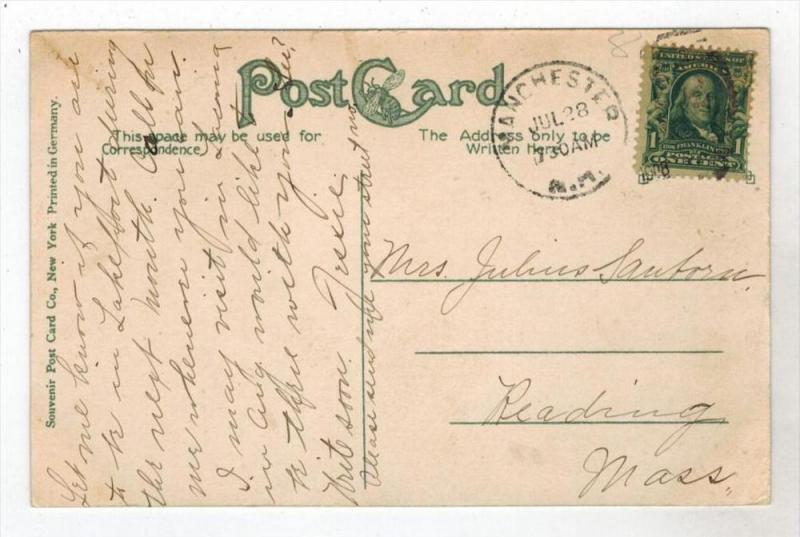 Post Card
This space may be used for
Correspondence
The Address only to be
Written Here
Souvenir Post Card Co., New York Printed in Germany.
MANCHESTER
JUL 28
730AM
N.H.
UNITED STATES OF
AMERICA
1
FRANKLIN
POSTAGE
ONE CENT
Mrs. Julius Sanborn
Reading
Mass.
Let me know if you are
to be in Lakeport during
the next month. Call on
me whenever you can.
I may visit in
in Aug would like to
be there with you.
Write soon. Tessie
Please send me your street no.